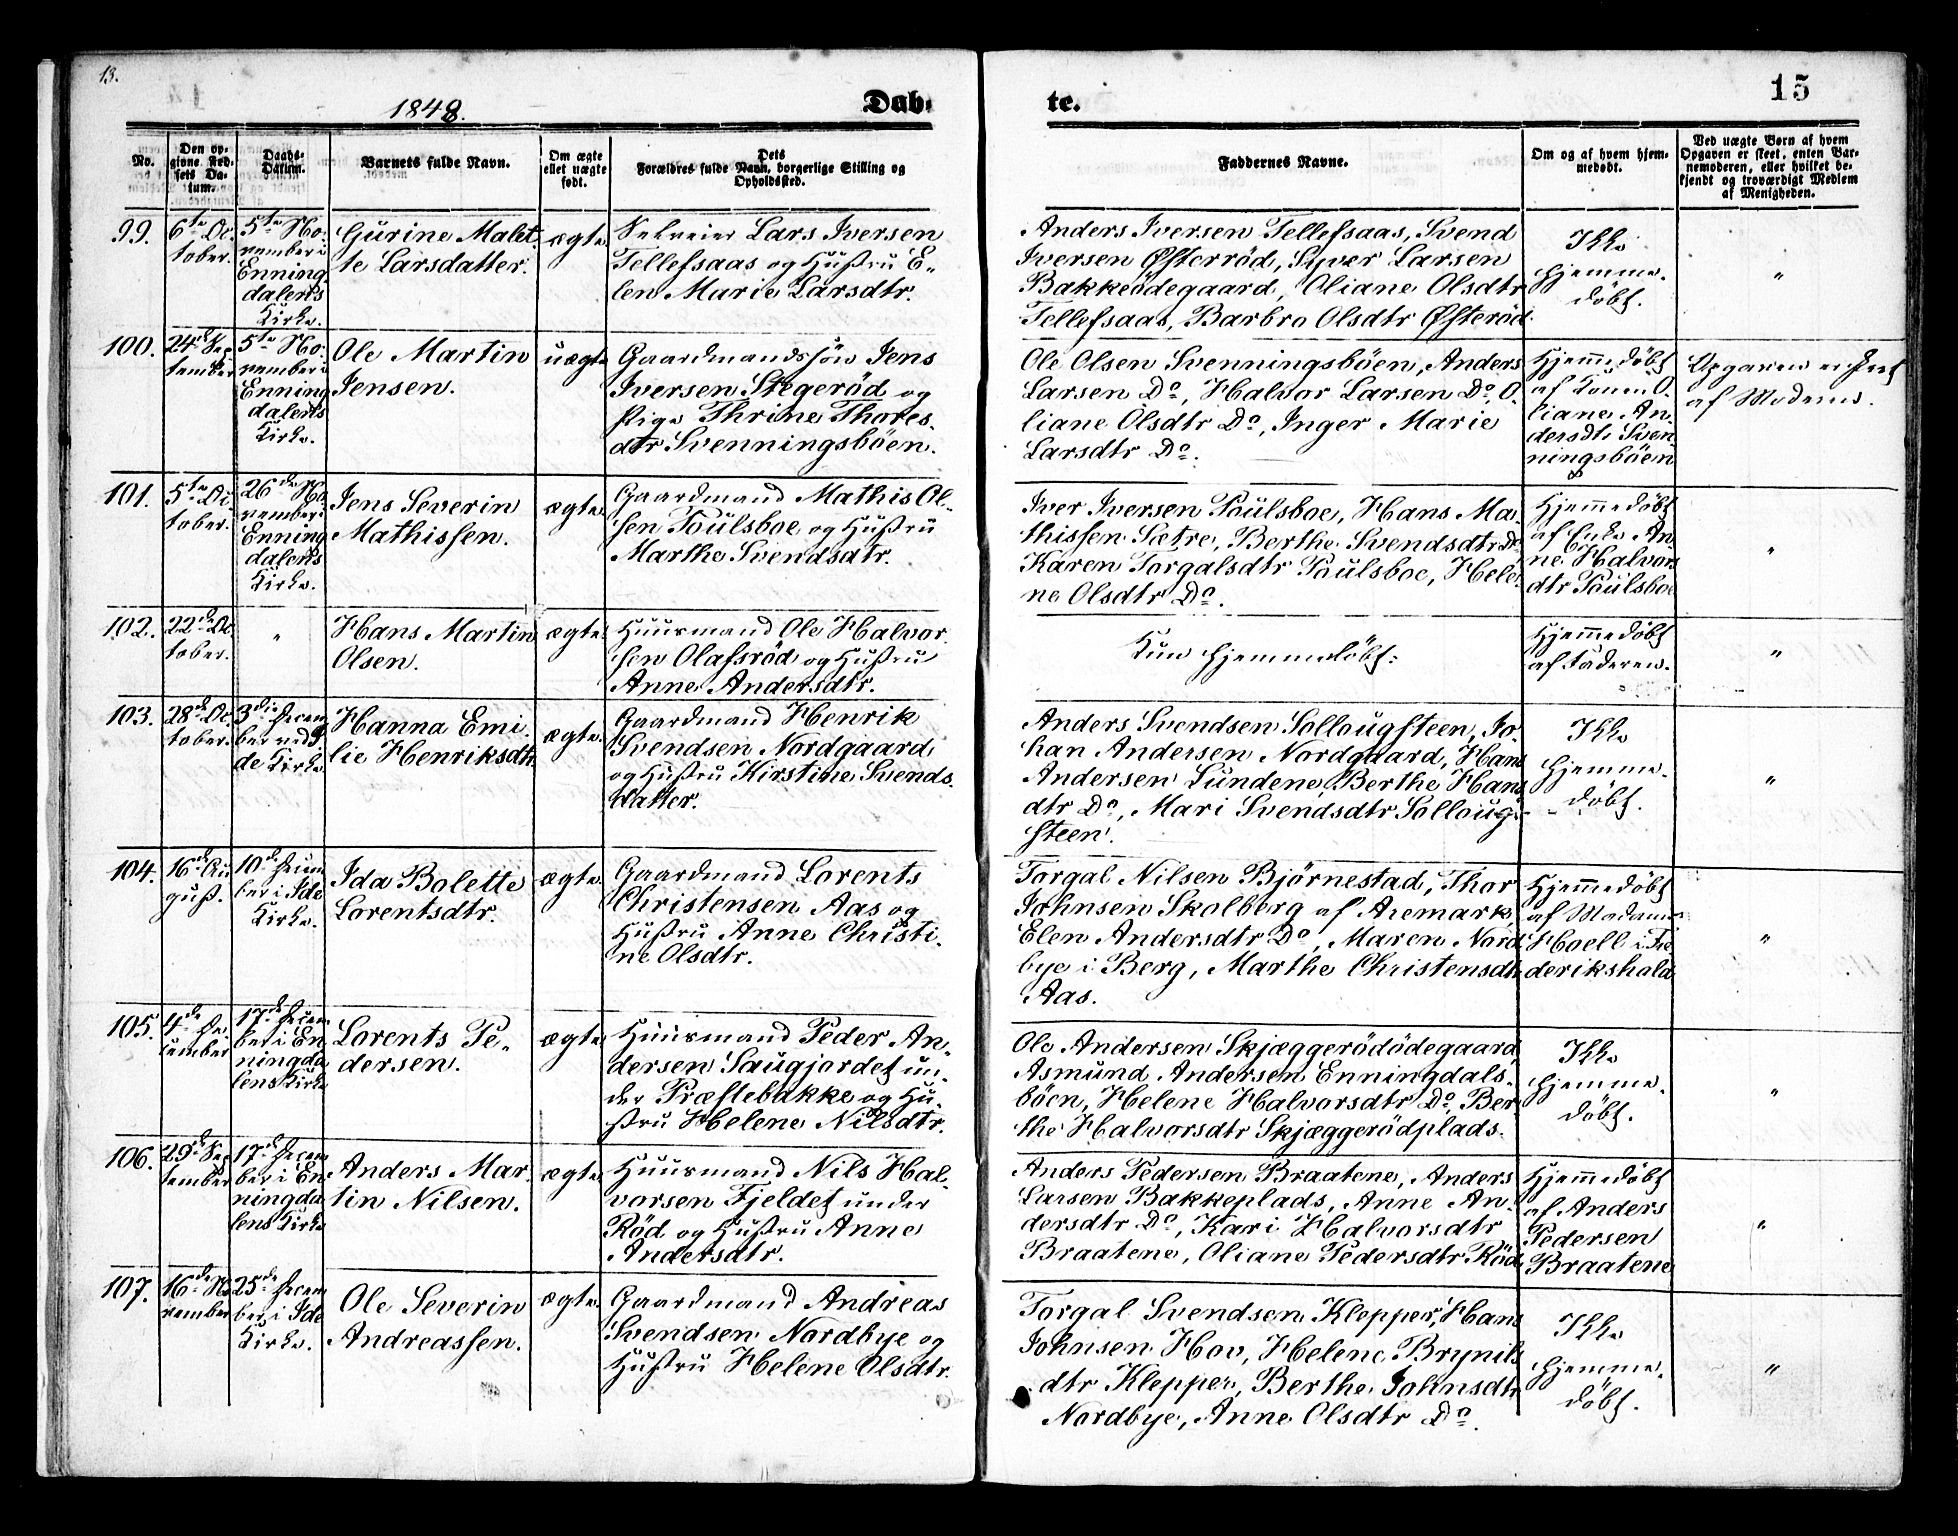 13.
15
1848.
Døb-
te.
No.
Den op-
givne Fød-
sels Da-
tum.
Daabs-
Datum.
Barnets fulde Navn.
Om ægte
eller uægte
født.
Dets
Forældres fulde Navn, borgerlige Stilling og
Opholdssted.
Faddernes Navne.
Om og af hvem hjem-
medøbt.
Ved uægte Børn af hvem
Opgaven er skeet, enten Bar-
nemoderen, eller hvilket be-
kjendt og troværdigt Medlem
af Menigheden.
99.
6te Oc-
tober.
5te No-
vember i
Enning-
dalens
Kirke.
Gurine Malet-
te Larsdatter.
ægte.
Selveier Lars Iversen
Tellefsaas og Hustru E-
len Marie Larsdtr.
Anders Iversen Tellefsaas, Svend
Iversen Østerröd, Syver Larsen
Bakkeödegaard, Oliane Olsdtr
Tellefsaas, Barbro Olsdtr Østeröd.
Ikke
hjemme-
döbt.
"
100.
24de Sep-
tember
5te No-
vember i
Enning-
dalens
Kirke.
Ole Martin
Jensen.
uægte
Gaardmandssön Jens
Iversen Stegeröd og
Pige Thrine Thores-
dtr Svenningsböen.
Ole Olsen Svenningsböen, Anders
Larsen Do, Halvor Larsen Do, O-
liane Olsdtr Do, Inger Marie
Larsdtr Do.
Hjemmedöbt
af Konen O-
liane An-
dersdtr Sven-
ningsböen
Opgaven er skeet
af Moderen.
101.
5te Oc-
tober.
26de No-
vember i
Enning-
dalens
Kirke.
Jens Severin
Mathissen.
ægte.
Gaardmand Mathis Ol-
sen Poulsboe og Hustru
Marthe Svendsdtr.
Iver Iversen Poulsboe, Hans Ma-
thissen Sætre, Berthe Svendsdtr Do
Karen Torgalsdtr Poulsboe, Hele-
ne Olsdtr Do.
Hjemmedöbt
af Enke An-
ne Halvors
dtr Poulsboe
"
102.
22de Oc-
tober.
"
Hans Martin
Olsen.
ægte.
Huusmand Ole Halvor-
sen Olafsröd og Hustru
Anne Andersdtr.
Kun hjemmedöbt.
Hjemmedöbt
af Faderen.
"
103.
28de Oc-
tober.
3die Decem-
ber ved I-
de Kirke
Hanna Emi-
lie Henriksdtr.
ægte.
Gaardmand Henrik
Svendsen Nordgaard
og Hustru Kirstine Svends-
datter.
Anders Svendsen Sollougsteen, Jo-
han Andersen Nordgaard, Hans
Andersen Lundene, Berthe Hans
dtr Do, Mari Svendsdtr Solloug-
steen.
Ikke
hjemme-
döbt.
"
104.
16de Au-
gust.
10de Decem-
ber i Ide
Kirke.
Ida Bolette
Lorentsdtr.
ægte.
Gaardmand Lorents
Christensen Aas og
Hustru Anne Christi-
ne Olsdtr.
Torgal Nilsen Björnestad, Thor
Johnsen Skolberg af Aremark
Elen Andersdtr Do, Maren Nord-
bye i Berg, Marthe Christensdtr
Aas.
Hjemmedöbt
af Madame
Hoell i Fre-
derikshald
"
105.
4de De-
cember
17de Decem-
ber i En-
ningda-
lens Kirke
Lorents Pe-
dersen.
ægte.
Huusmand Peder An-
dersen Saugjordet un-
der Præstebakke og Hu-
stru Helene Nilsdtr.
Ole Andersen Skjæggerödödegaard,
Asmund Andersen Enningdals-
böen, Helene Halvorsdtr Do, Ber-
the Halvorsdtr Skjæggerödplads.
Ikke
hjemme-
döbt.
"
106.
29de Sep-
tember
17de Decem-
ber i En-
ningda-
lens Kirke
Anders Mar-
tin Nilsen.
ægte.
Huusmand Nils Hal-
vorsen Fjeldet under
Röd og Hustru Anne
Andersdtr.
Anders Pedersen Braatene, Anders
Larsen Bakkeplads, Anne An-
dersdtr Do, Kari Halvorsdtr
Braatene, Oliane Pedersdtr Röd
Hjemmedöbt
af Anders
Pedersen
Braatene
"
107.
16de No-
vember
25de Decem-
ber i Ide
Kirke.
Ole Severin
Andreassen.
ægte.
Gaardmand Andreas
Svendsen Nordbye og
Hustru Helene Olsdtr.
Torgal Svendsen Klepper, Hans
Johnsen Hov, Helene Brynils
dtr Klepper, Berthe Johnsdtr
Nordbye, Anne Olsdtr Do.
Ikke
hjemme-
döbt.
"